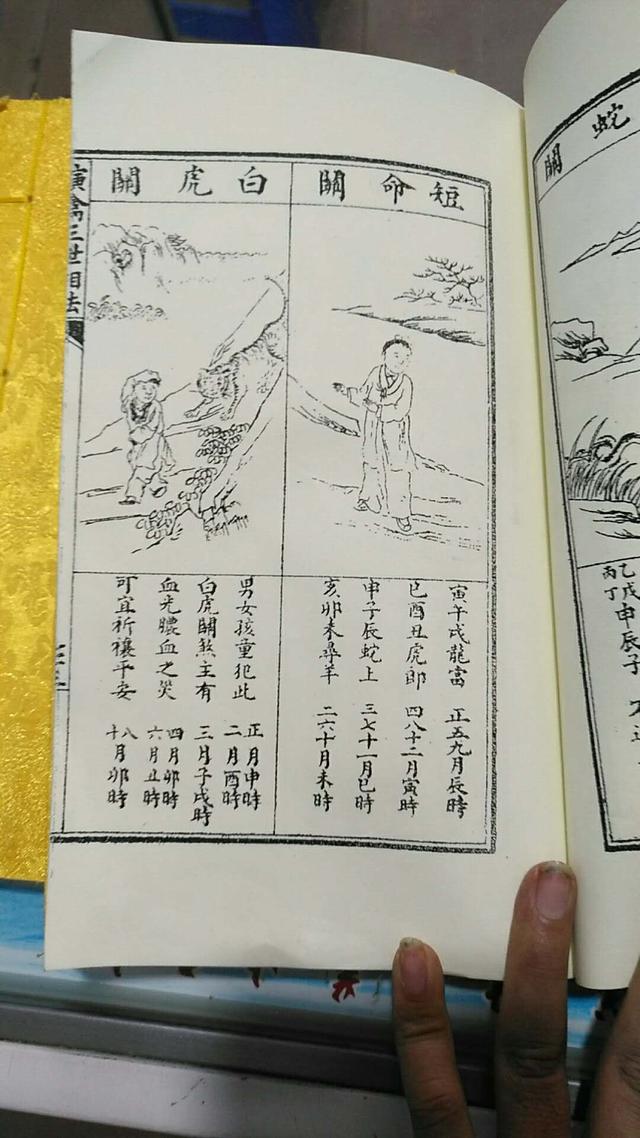 短命關
寅午戌龍當 正五九月辰時
巳酉丑虎郎 四八十二月寅時
申子辰蛇上 三七十一月巳時
亥卯未尋羊 二六十月未時
白虎關
男女孩童犯此
白虎關煞主有
血光膿血之災
可宜祈禳平安
正月申時
二月酉時
三月子戌時
四月卯時
六月丑時
八月卯時
十
演禽三世相法
蛇關
乙戊申辰子
丙丁